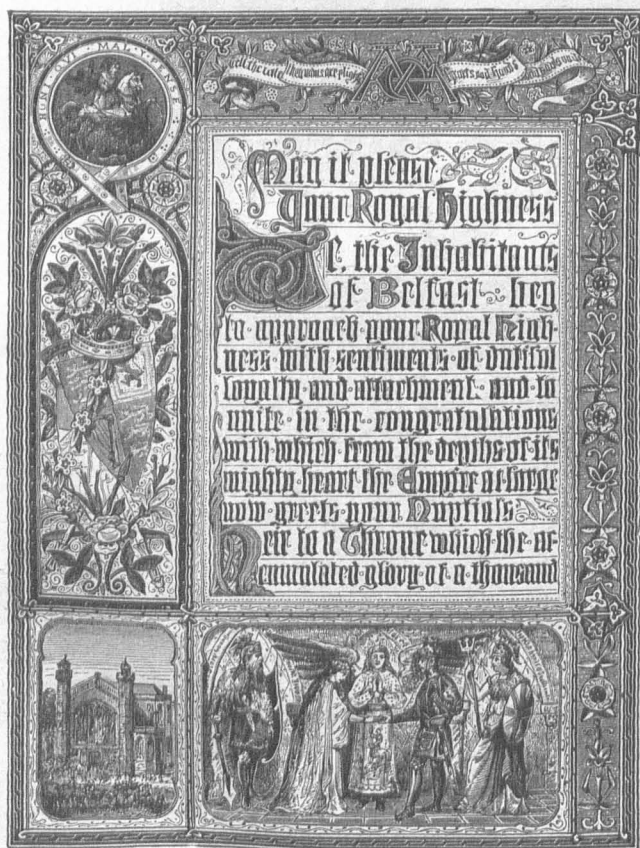 HONI SOIT QUI MAL Y PENSE
May it please
Your Royal Highness
We, the Inhabitants
of Belfast beg
to approach your Royal High-
ness with sentiments of dutiful
loyalty and attachment and to
unite in the congratulations
with which from the depths of its
mighty heart the Empire at large
now greets your Nuptials
Heir to a Throne which the ac
cumulated glory of a thousand